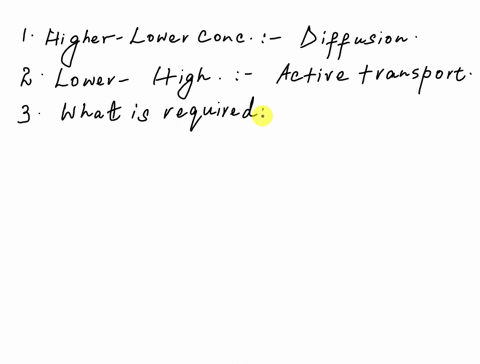 1. Higher-Lower conc. :- Diffusion.
2. Lower- High. :- Active transport.
3. What is required: